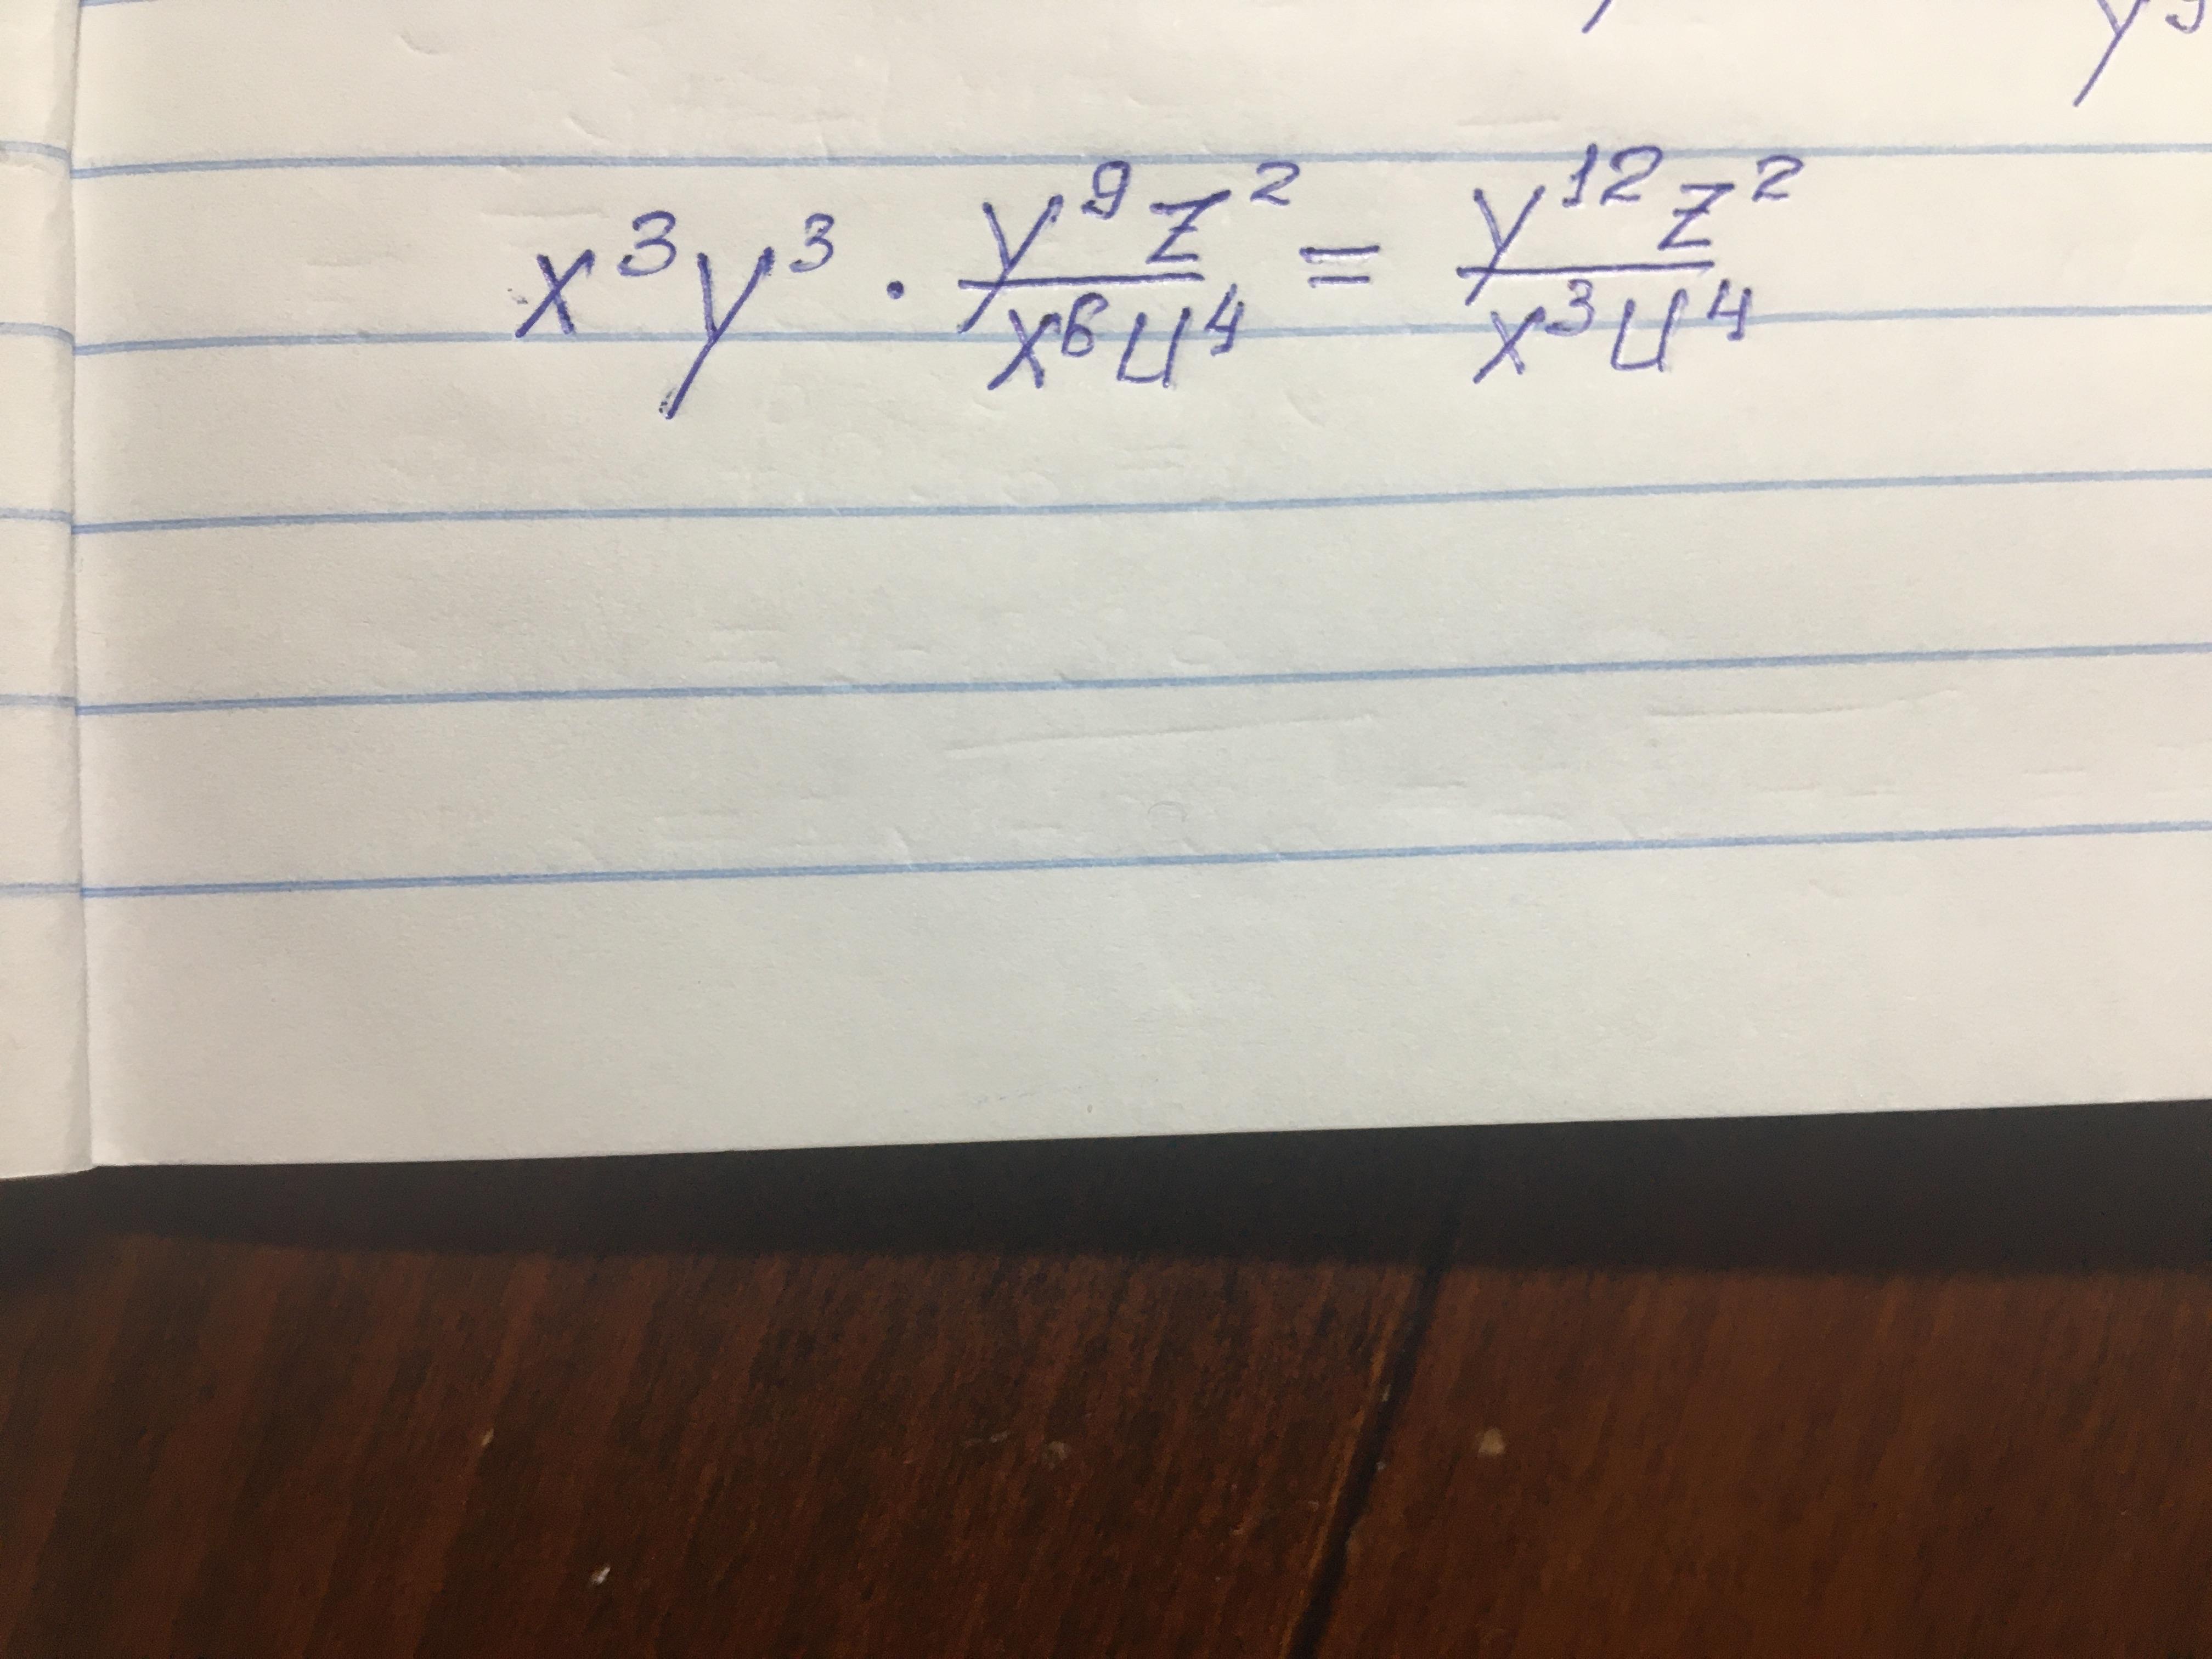 x³y³ · y⁹z²/x⁶u⁴ = y¹²z²/x³u⁴